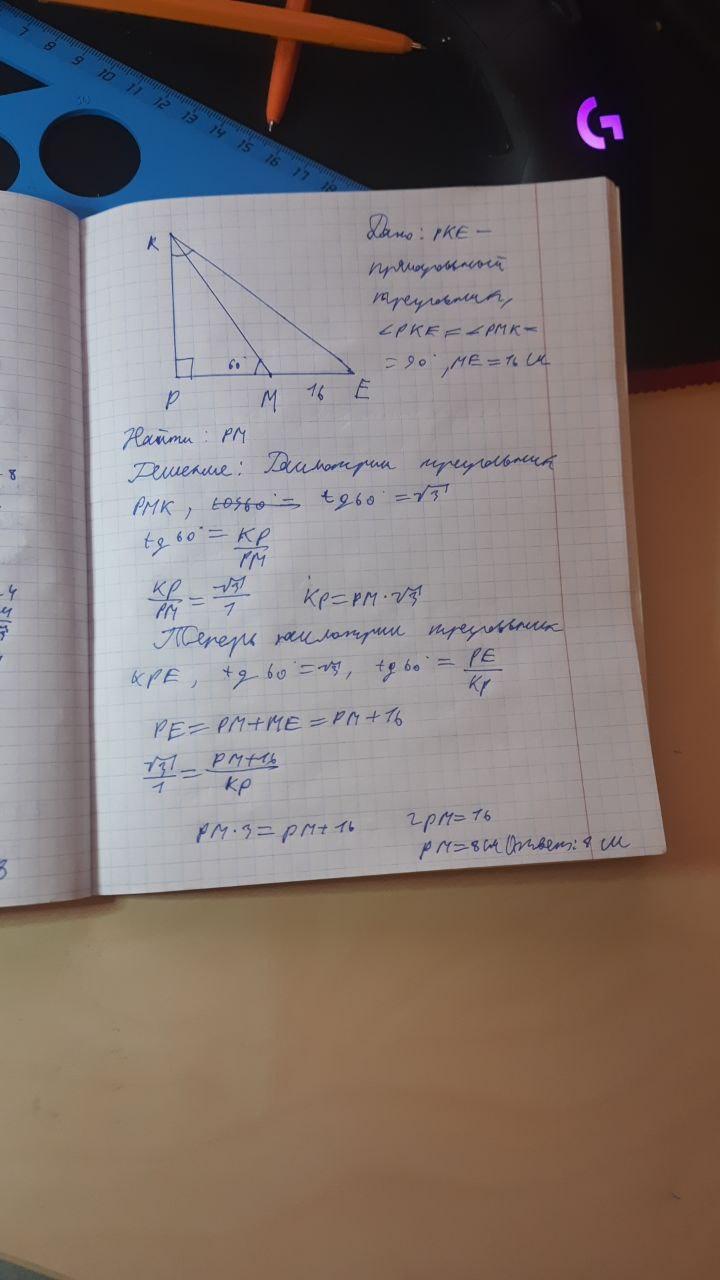 7 8 9 10 11 12 13 14 15 16 17 18
K
60°
P M 16 E
Дано: PKE –
прямоугольный
треугольник,
∠PKE = ∠PMK =
= 90°, ME = 16 см
Найти: PM
Решение: Рассмотрим треугольник
PMK, cos60° = tg60° = √3
tg 60° = KP/PM
KP/PM = √3/1 KP = PM · √3
Теперь рассмотрим треугольник
KPE, tg 60° = √3, tg 60° = PE/KP
PE = PM + ME = PM + 16
√3/1 = PM + 16/KP
PM · 3 = PM + 16 2PM = 16
PM = 8 см Ответ: 8 см